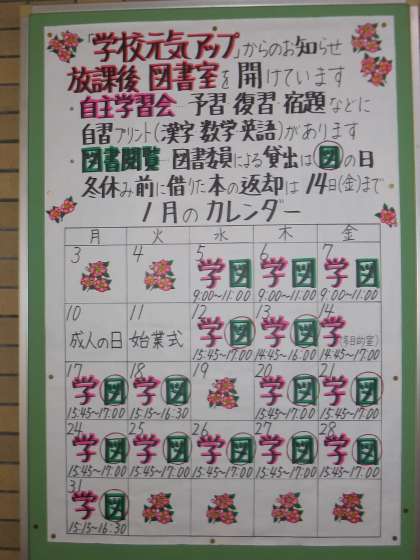 「学校元気アップ」からのお知らせ
放課後 図書室を開けています
・自主学習会 予習 復習 宿題などに
自習プリント(漢字 数学 英語)があります
・図書閲覧 図書委員による貸出は図の日
冬休み前に借りた本の返却は14日(金)まで
1月のカレンダー
月 火 水 木 金
3 4 5 6 7
学図 学図 学図
9:00~11:00 9:00~11:00 9:00~11:00
10 11 12 13 14
成人の日 始業式 学図 学図 学(多目的室)
15:45~17:00 14:45~16:00 14:45~17:00
17 18 19 20 21
学図 学図 学図 学図
15:45~17:00 15:15~16:30 15:45~17:00 15:45~17:00
24 25 26 27 28
学図 学図 学図 学図 学図
15:45~17:00 15:45~17:00 15:45~17:00 15:45~17:00 15:45~17:00
31
学図
15:15~16:30